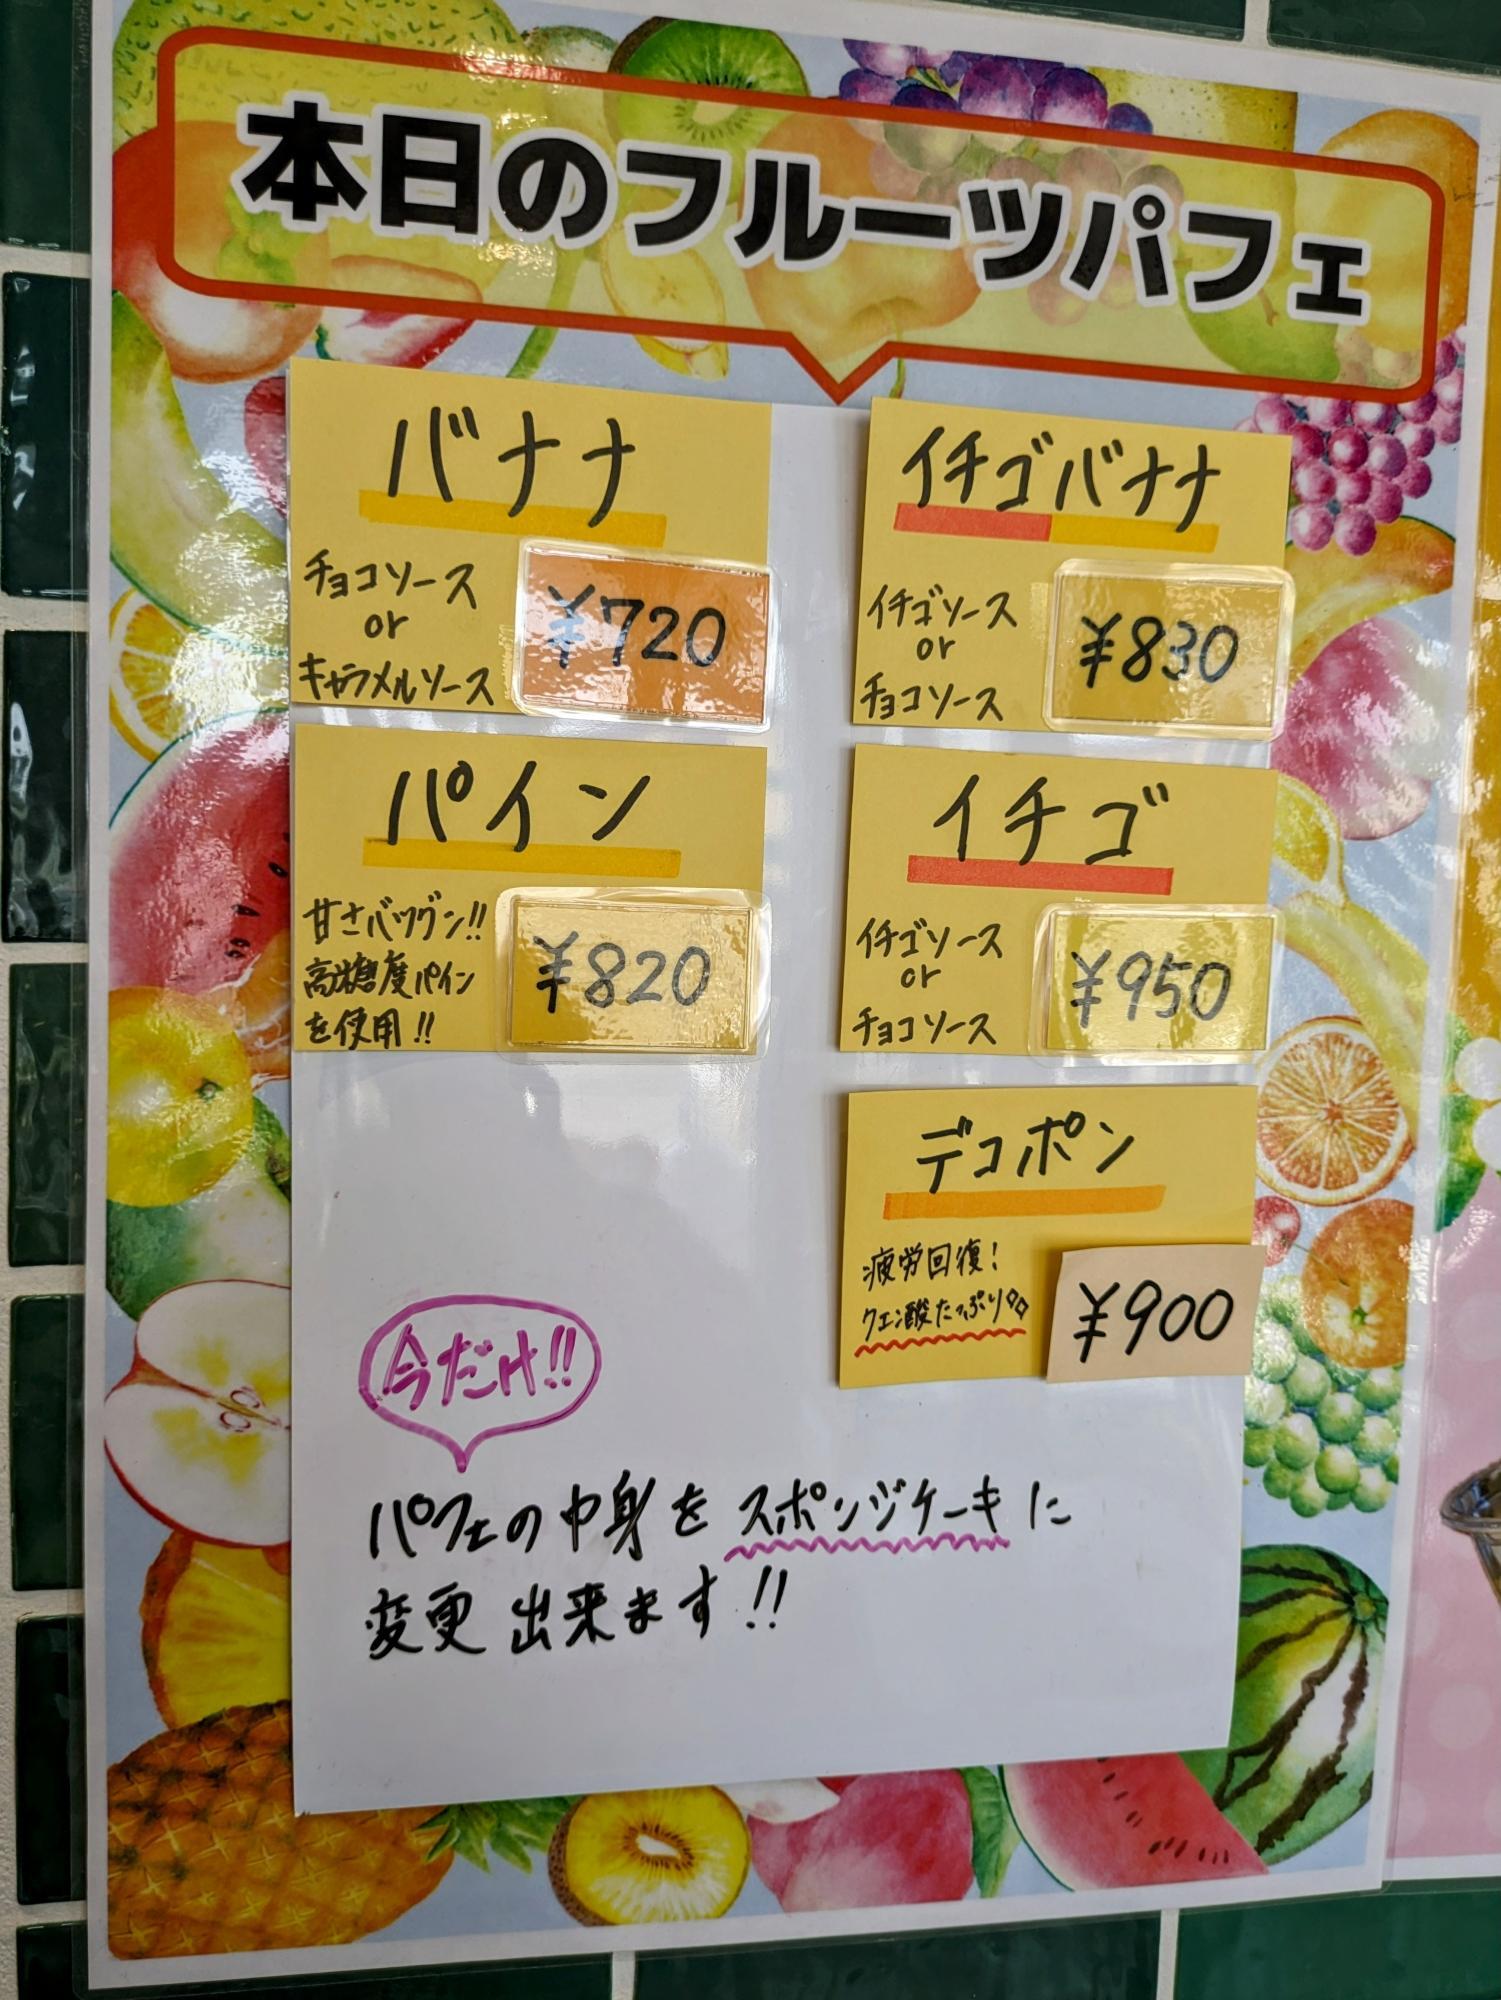 本日のフルーツパフェ
バナナ
チョコソース
or
キャラメルソース
¥720
イチゴバナナ
イチゴソース
or
チョコソース
¥830
パイン
甘さバツグン!!
高糖度パイン
を使用!!
¥820
イチゴ
イチゴソース
or
チョコソース
¥950
デコポン
疲労回復!
クエン酸たっぷり
¥900
今だけ!!
パフェの中身をスポンジケーキに
変更出来ます!!